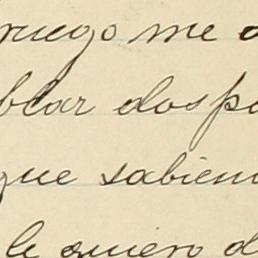 ruego me
blar dos pa
que sabien
le quiero d